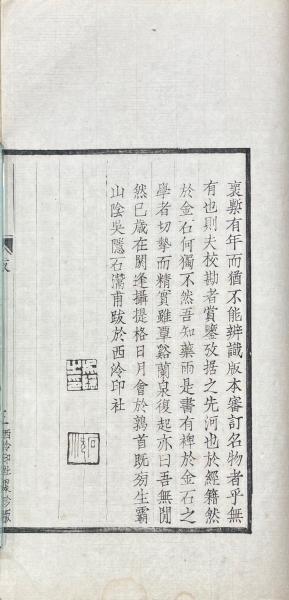 裒槧有年而猶不能辨識版本審訂名物者乎無
有也則夫校勘者賞鑒攷据之先河也於經籍然
於金石何獨不然吾知藥雨是書有裨於金石之
學者切摯而精實雖覃谿蘭泉復起亦曰吾無閒
然已歲在閼逢攝提格日月會於鶉首既旁生霸
山陰吳隱石潛甫跋於西泠印社
跋
西泠印社聚珍版